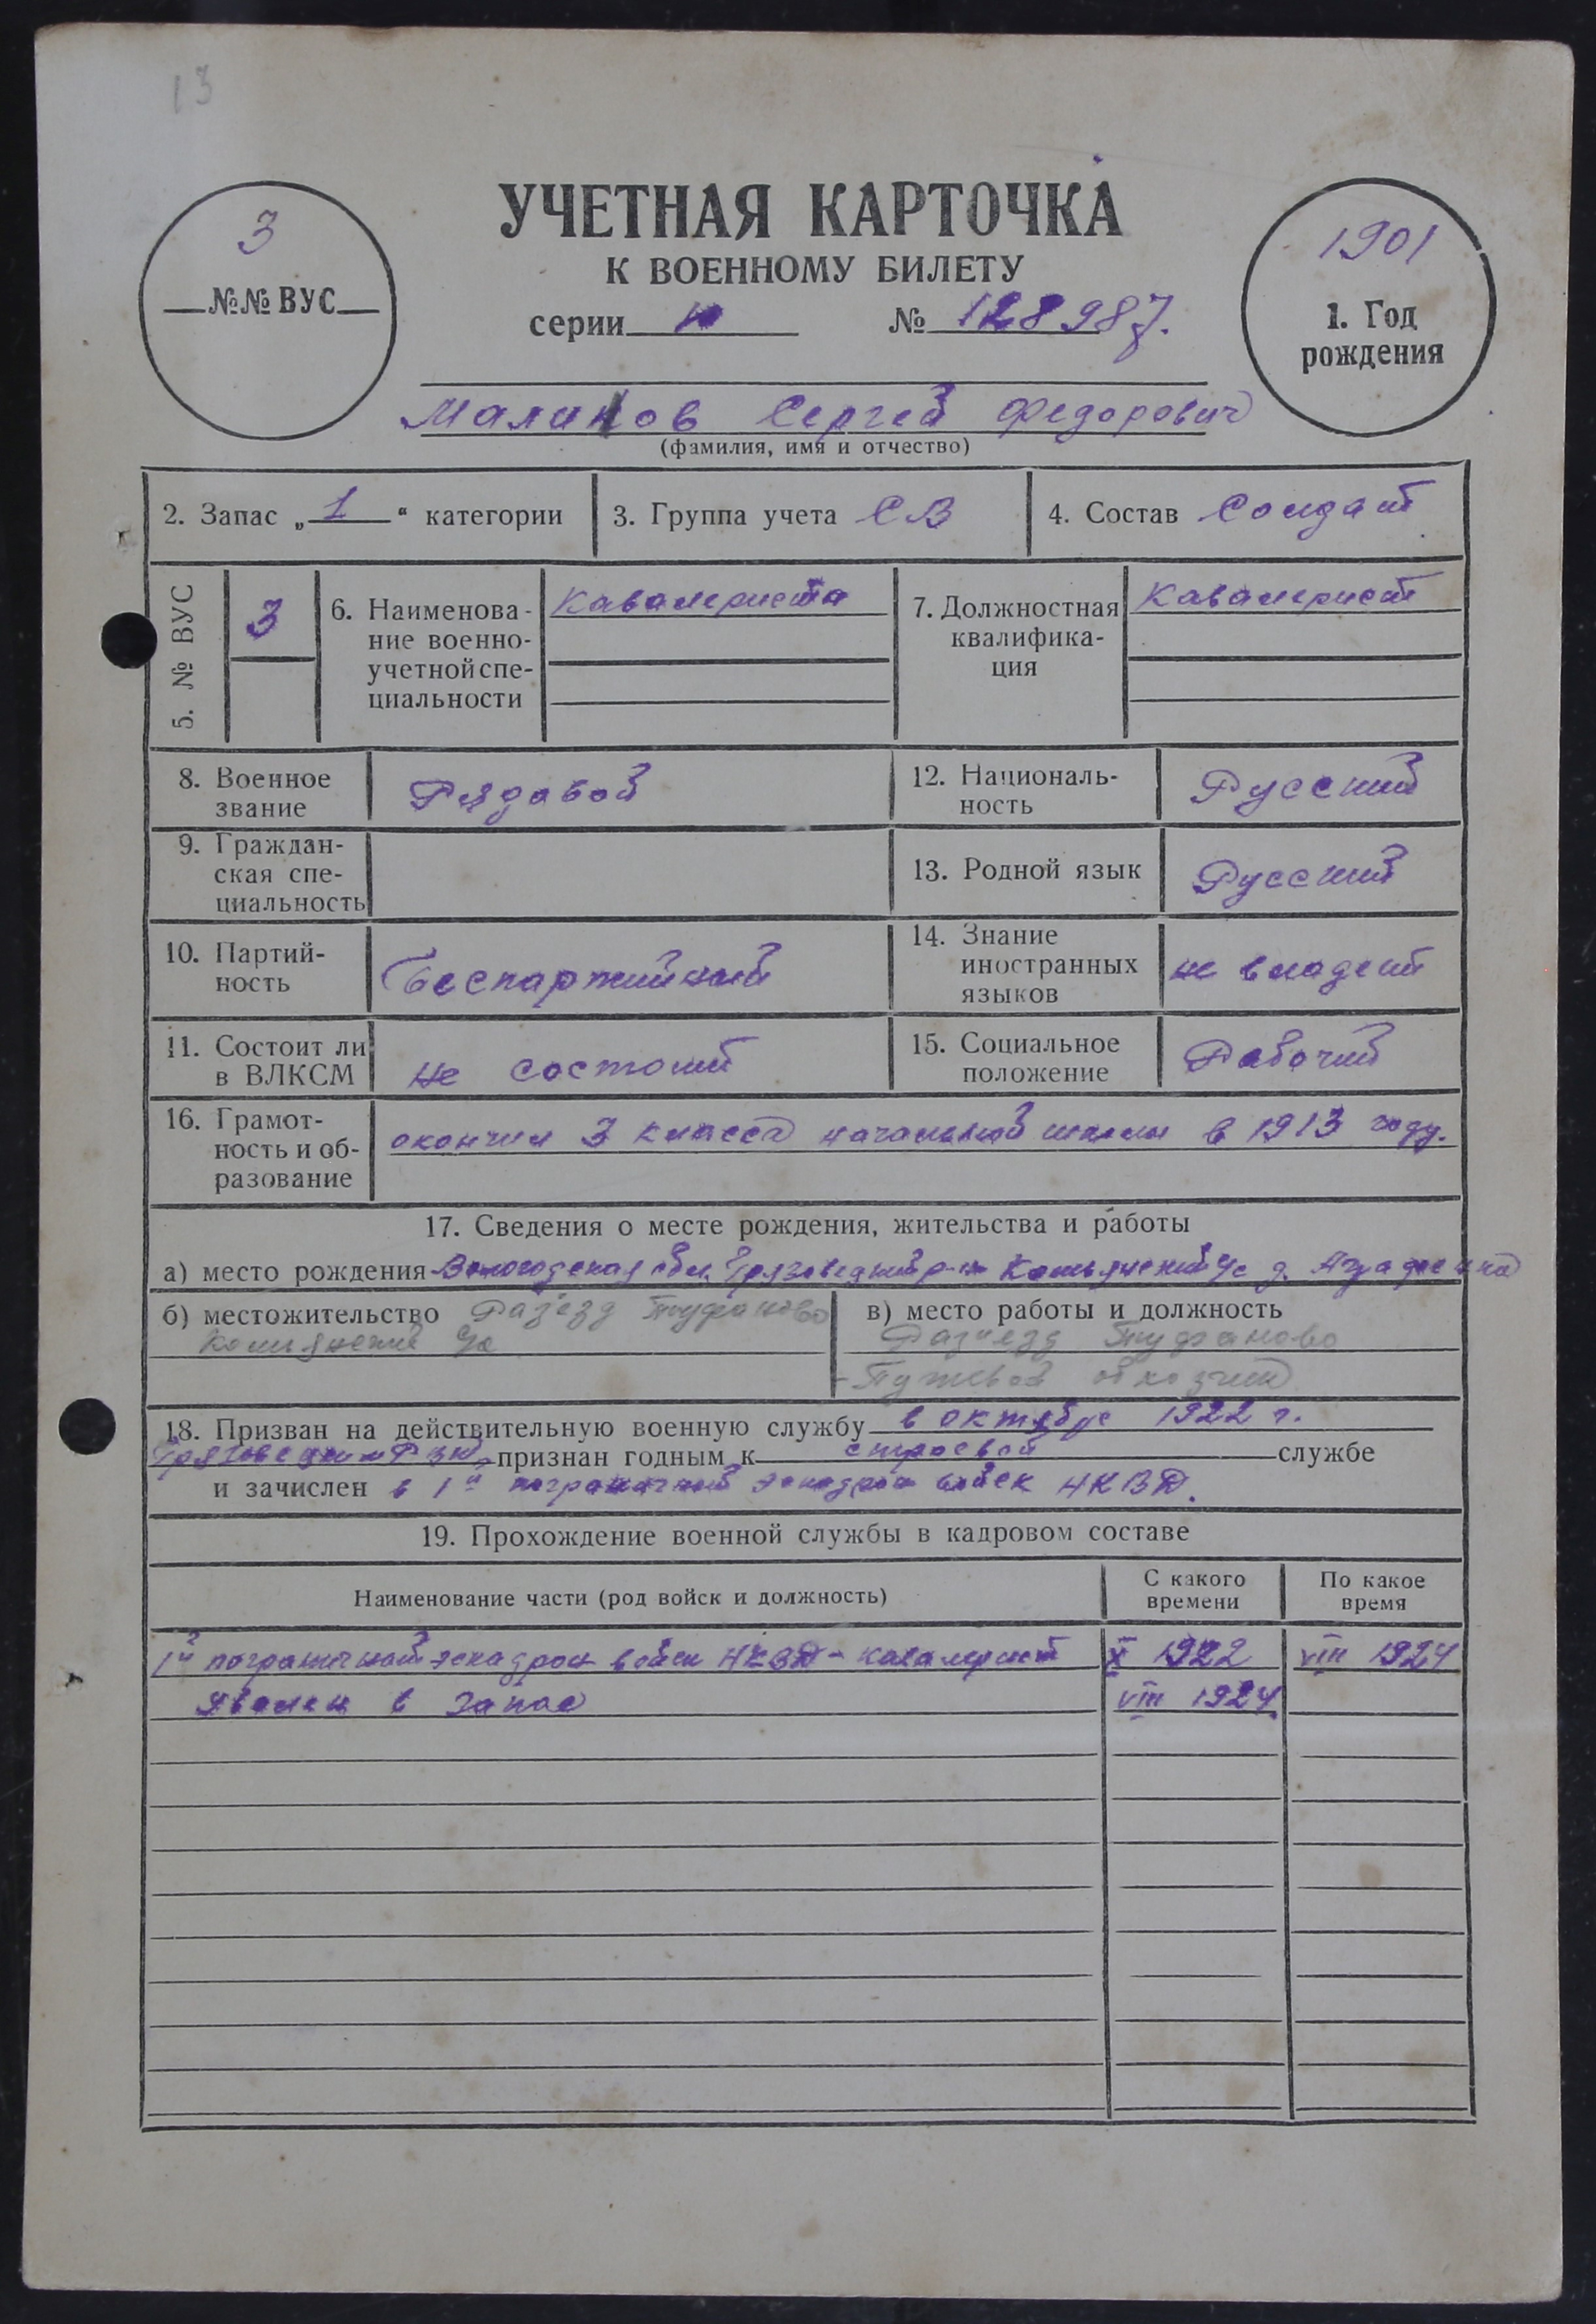 13
УЧЕТНАЯ КАРТОЧКА
К ВОЕННОМУ БИЛЕТУ
серии № 128987.
3
№№ ВУС
1901
1. Год
рождения
Сергей Федорович
(фамилия, имя и отчество)
2. Запас „1“ категории
3. Группа учета СВ
4. Состав Солдат
5. № ВУС
3
6. Наименова-
ние военно-
учетной спе-
циальности
Кавалериста
7. Должностная
квалифика-
ция
Кавалерист
8. Военное
звание
Рядовой
12. Националь-
ность
Русский
9. Граждан-
ская спе-
циальность
13. Родной язык
Русский
10. Партий-
ность
Беспартийный
14. Знание
иностранных
языков
не владеет
11. Состоит ли
в ВЛКСМ
не состоит
15. Социальное
положение
Рабочий
16. Грамот-
ность и об-
разование
окончил 3 класса начальной школы в 1913 году.
17. Сведения о месте рождения, жительства и работы
а) место рождения Вологодская обл. Грязовецкий р-н д.
б) местожительство Разъезд Туфаново
с/с
в) место работы и должность
Разъезд Туфаново
Путевой обходчик
18. Призван на действительную военную службу в октябре 1922 г.
признан годным к строевой службе
и зачислен в 1й пограничный эскадрон войск НКВД.
19. Прохождение военной службы в кадровом составе
Наименование части (род войск и должность)
С какого
времени
По какое
время
1й пограничный эскадрон войск НКВД - кавалерист X 1922 VIII 1924
Уволен в запас VIII 1924.